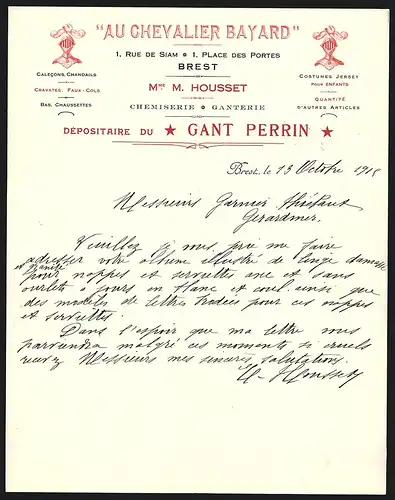 "AU CHEVALIER BAYARD"
1, RUE DE SIAM • 1, PLACE DES PORTES
BREST
MME M. HOUSSET
CHEMISERIE • GANTERIE
DÉPOSITAIRE DU ★ GANT PERRIN ★
CALEÇONS, CHANDAILS
CRAVATES, FAUX-COLS
BAS, CHAUSSETTES
COSTUMES JERSEY
POUR ENFANTS
QUANTITÉ
D'AUTRES ARTICLES
Brest, le 13 Octobre 1915
Messieurs Garnier Thiébaut
Gerardmer.
Veuillez je vous prie me faire
adresser votre album illustré de linge damassé
pour nappes et serviettes avec et sans
ourlets à jours en blanc et coul. ainsi que
des modèles de lettres brodées pour ces nappes
et serviettes.
Dans l'espoir que ma lettre vous
parviendra malgré ces moments si cruels
recevez Messieurs mes sincères salutations.
M. Housset